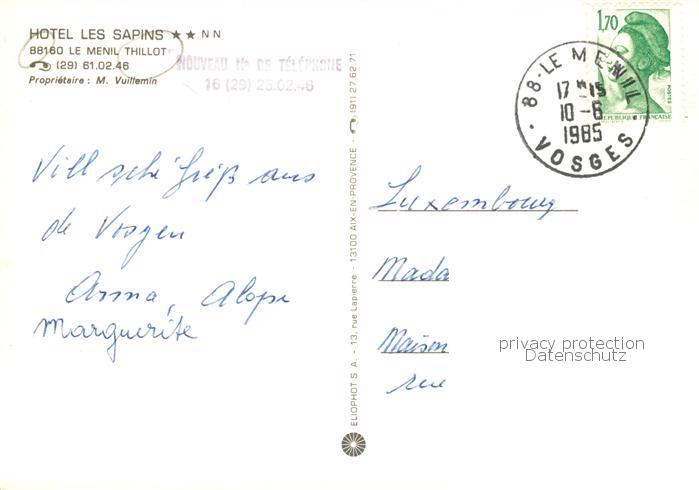 HOTEL LES SAPINS ★★ N N
88160 LE MENIL THILLOT
(29) 61.02.46
Propriétaire : M. Vuillemin
NOUVEAU N° DE TÉLÉPHONE
16 (29) 25.02.46
Vill sché Gréiß aus
de Vosgen
Anna, Aloyse
Marguerite
ELIOPHOT S. A. - 13, rue Lapierre - 13100 AIX-EN-PROVENCE - (91) 27.62.71
1,70
POSTES
REPUBLIQUE FRANÇAISE
88-LE MENIL
17 H 15
10-6
1985
VOSGES
Luxembourg
Mada
Maison
rue
privacy protection
Datenschutz